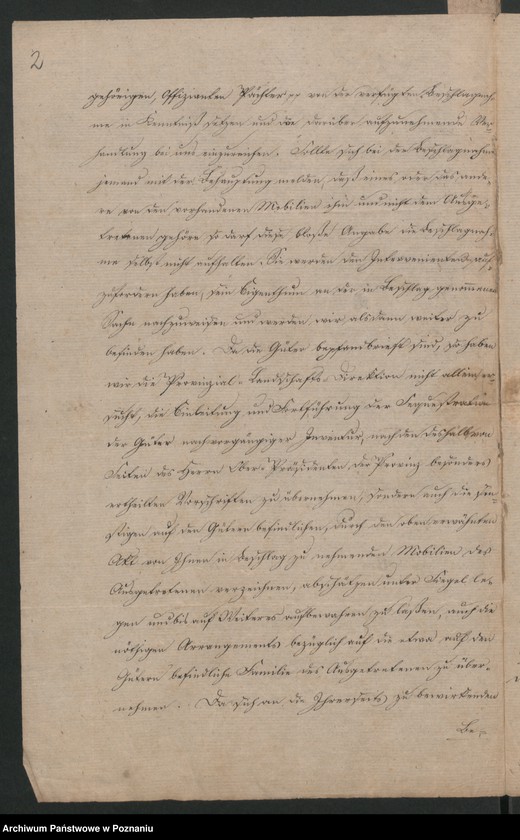 2
gehörigen, Offizianten Pächter pp von der verfügten Beschlagnah-
me in Kenntniß setzen und die darüber aufzunehmende Ver-
handlung bei uns einzureichen. Sollte sich bei der Beschlagnahme
jemand mit der Behauptung melden, daß eines oder das ande-
re von den vorhandenen Mobilien ihm und nicht dem Ausge-
tretenen gehöre so darf diese bloße Angabe die Beschlagnah-
me selbst nicht aufhalten. Sie werden den Intervenienten auf-
zufordern haben, sein Eigenthum an der in Beschlag genommenen
Sache nachzuweisen und werden wir alsdann weiter zu
befinden haben. Da die Güter bepfandbrieft sind, so haben
wir die Provinzial-Landschafts-Direktion nicht allein er-
sucht, die Einleitung und Fortführung der Sequestration
der Güter nach vorgängiger Inventur, nach den deshalb von
Seiten des Herrn Ober-Präsidenten der Provinz besonders
ertheilten Vorschriften zu übernehmen, sondern auch die son-
stigen auf den Gütern befindlichen, durch den oben erwähnten
Akt von Ihnen in Beschlag zu nehmenden Mobilien des
Ausgetretenen verzeichnen, abschätzen unter Siegel le-
gen und bis auf Weiteres aufbewahren zu lassen, auch die
nöthigen Arrangements bezüglich auf die etwa auf den
Gütern befindliche Familie des Ausgetretenen zu über-
nehmen. Da sich an die Ihrerseits zu bewirkenden
Be-
Archiwum Państwowe w Poznaniu